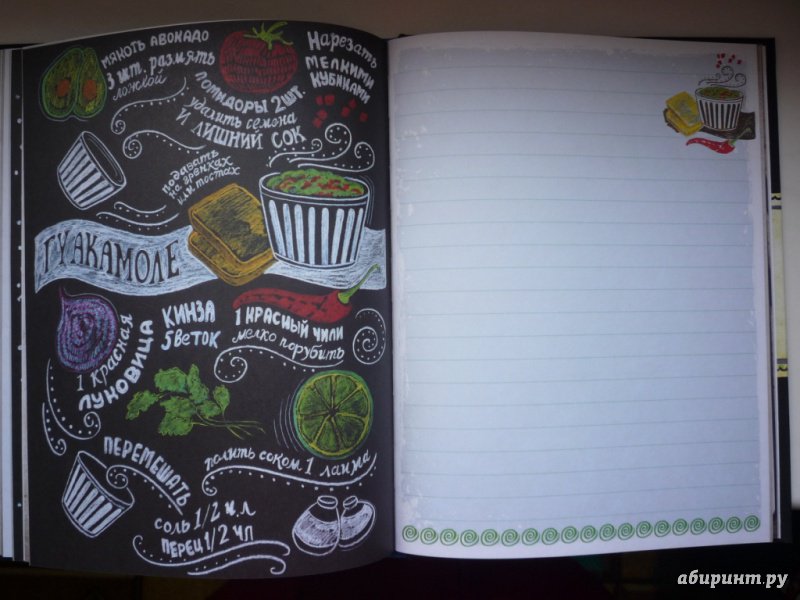 мякоть авокадо
3 шт. размять
ложкой
Помидоры 2 шт.
удалить семена
и лишний сок
Нарезать
мелкими
кубиками
подавать
на гренках
или тостах
ГУАКАМОЛЕ
1 красная
луковица
КИНЗА
5 веток
1 красный чили
мелко порубить
ПЕРЕМЕШАТЬ
полить соком 1 лайма
соль 1/2 ч л
ПЕРЕЦ 1/2 ЧЛ
абиринт.ру